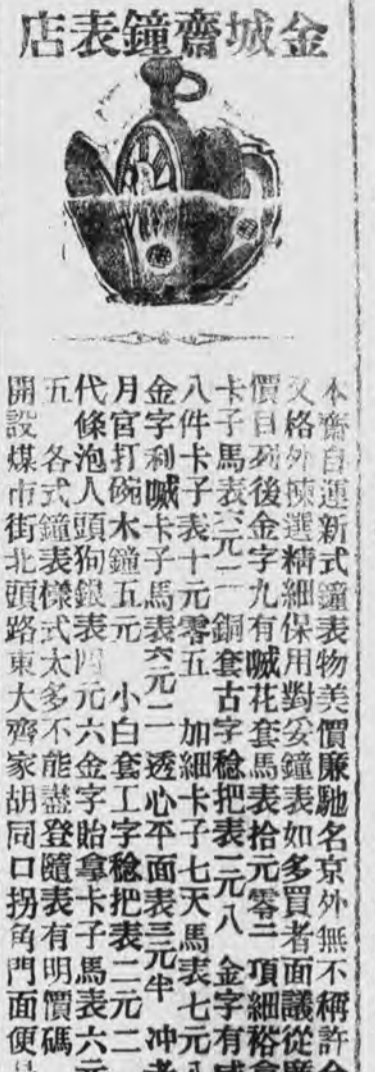 金城齋鐘表店
本齋自運新式鐘表物美價廉馳名京外無不稱許
又格外揀選精細保用對妥鐘表如多買者面議從廉
價目列後金字九有喴花套馬表拾元零二 項細裕
卡子馬表六元二 銅套古字穏把表二元八 金字有
八件卡子表十元零五 加細卡子七天馬表七元
金字利喴卡子馬表六元二 透心平面表三元半 冲
月官打碗木鐘五元 小白套工字穏把表二元二
代條泡人頭狗銀表四元六金字貽拿卡子馬表六元
五 各式鐘表樣式太多不能盡登隨表有明價碼
開設煤市街北頭路東大齊家胡同口拐角門面便是